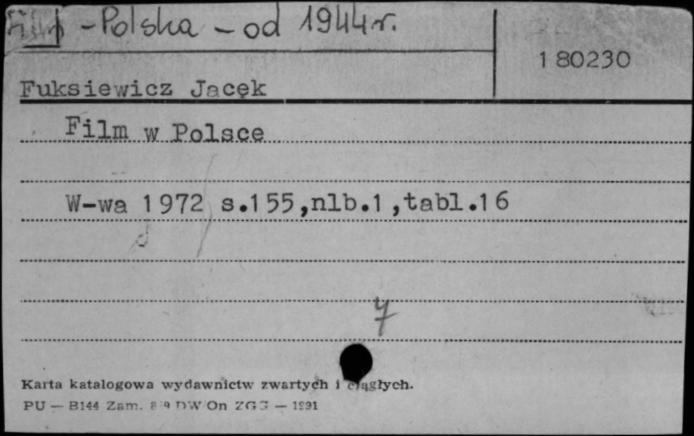 Film - Polska - od 1944 r.
180230
Fuksiewicz Jacek
Film w Polsce
W-wa 1972 s.155,nlb.1,tabl.16
Karta katalogowa wydawnictw zwartych i ciągłych.
PU — B144 Zam. DW On ZGG — 1991